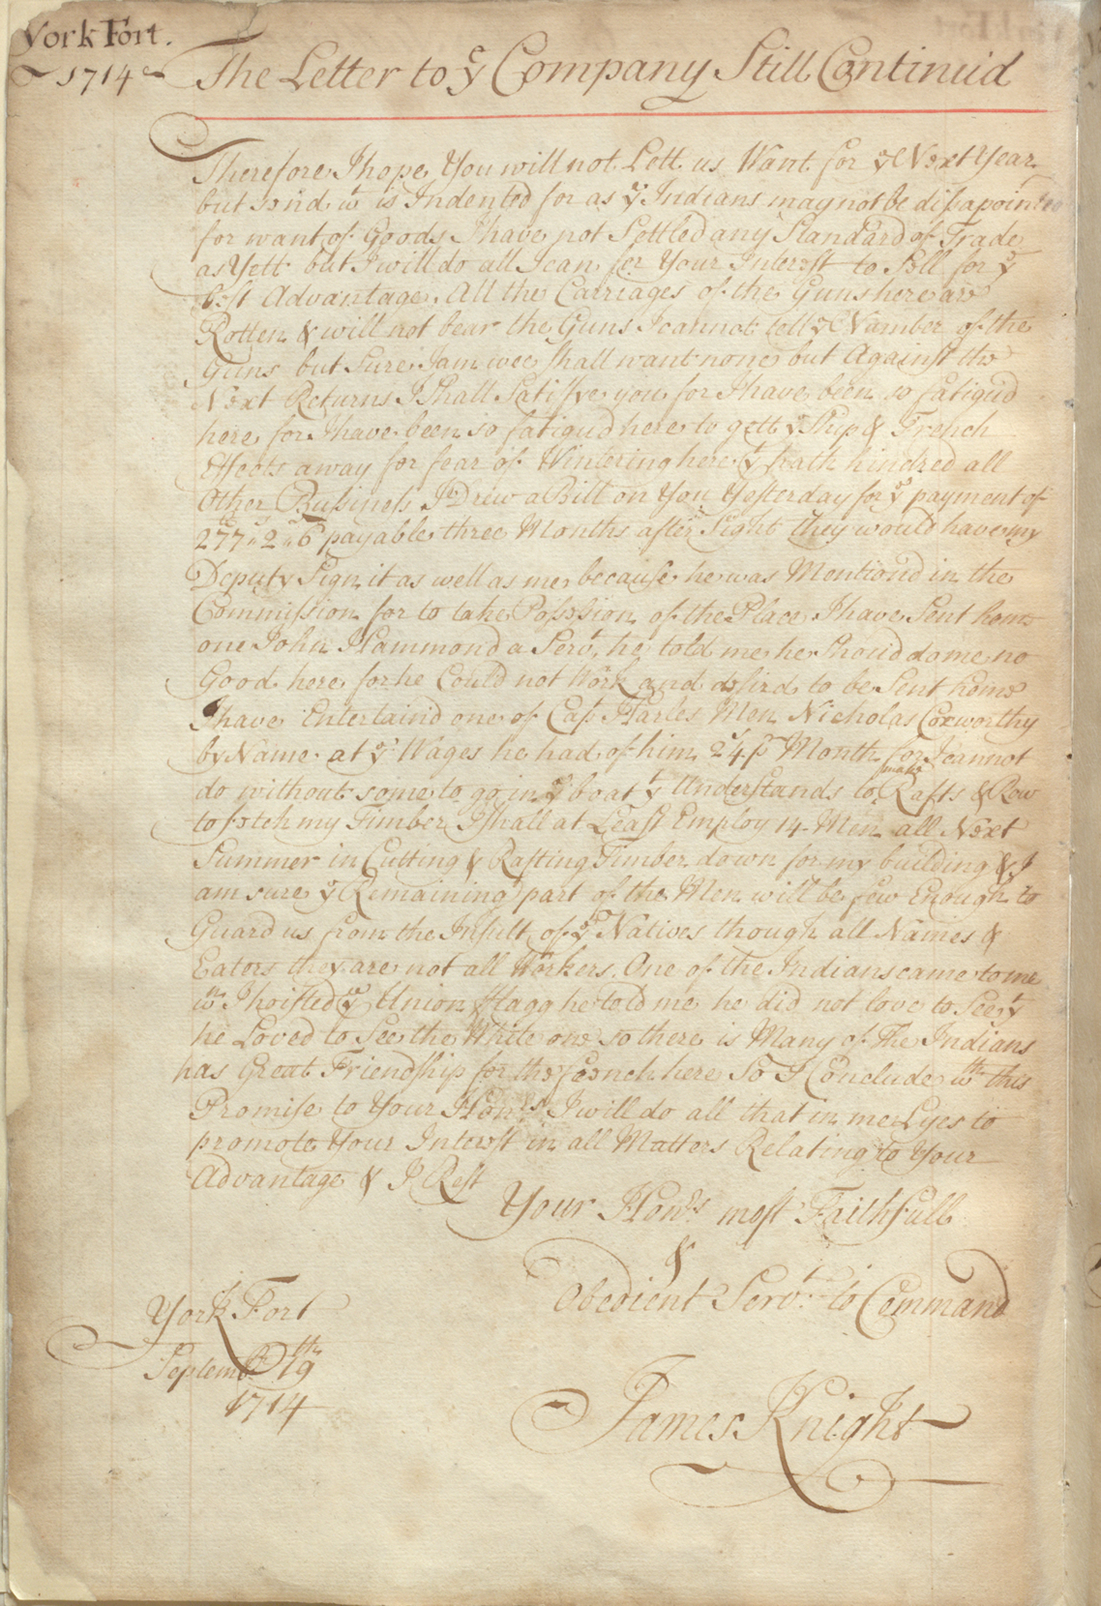 York Fort.
1714
The Letter to ye Company Still Continuid
Therefore I hope You will not Lett us Want for ye Next Year
but send wt is Indented for as ye Indians may not be dissapointed
for want of Goods I have not Settled any Standard of Trade
as Yett but I will do all I can for Your Interest to Sell for ye
best Advantage. All the Carriages of the Guns here are
Rotten & will not bear the Guns I cannot tell ye Number of the
Guns but Sure I am wee shall want none but Against the
Next Returns I Shall Satisfye you for I have been so fatigu'd
here for I have been so fatigud here to gett ye Ship & French
Effects away for fear of Wintering here yt hath hindred all
Other Business I Drew a Bill on You Yesterday for ye payment of
277"2"6 payable three Months after Sight they would have my
Deputy Sign it as well as me because he was Mention'd in the
Commission for to take Possession of the Place I have Sent home
one John Hammond a Servt. he told me he Shou'd do me no
Good here for he Could not Work and desir'd to be Sent home
I have Entertain'd one of Capt Harles Men Nicholas Coxworthy
by Name at ye Wages he had of him 24 pr Month for I cannot
do without some to go in ye boat yt Understands to make Rafts & Row
to fetch my Timber I shall at Least Employ 14 Men all Next
Summer in Cutting & Rafting Timber down for my building & I
am sure ye Remaining part of the Men will be few Enough to
Guard us from the Insult of ye Natives though all Names &
Eaters they are not all Workers. One of the Indians came to me
wn I hoisted ye Union Flagg he told me he did not love to See yt
he Loved to See the White one so there is Many of The Indians
has Great Friendship for the French here So I Conclude wth this
Promise to Your Honrs. I will do all that in me Lyes to
promote Your Interest in all Matters Relating to Your
Advantage & I Rest
Your Honrs most Faithfull
&
Obedient Servt. to Command
York Fort
Septembr 19th
1714
James Knight